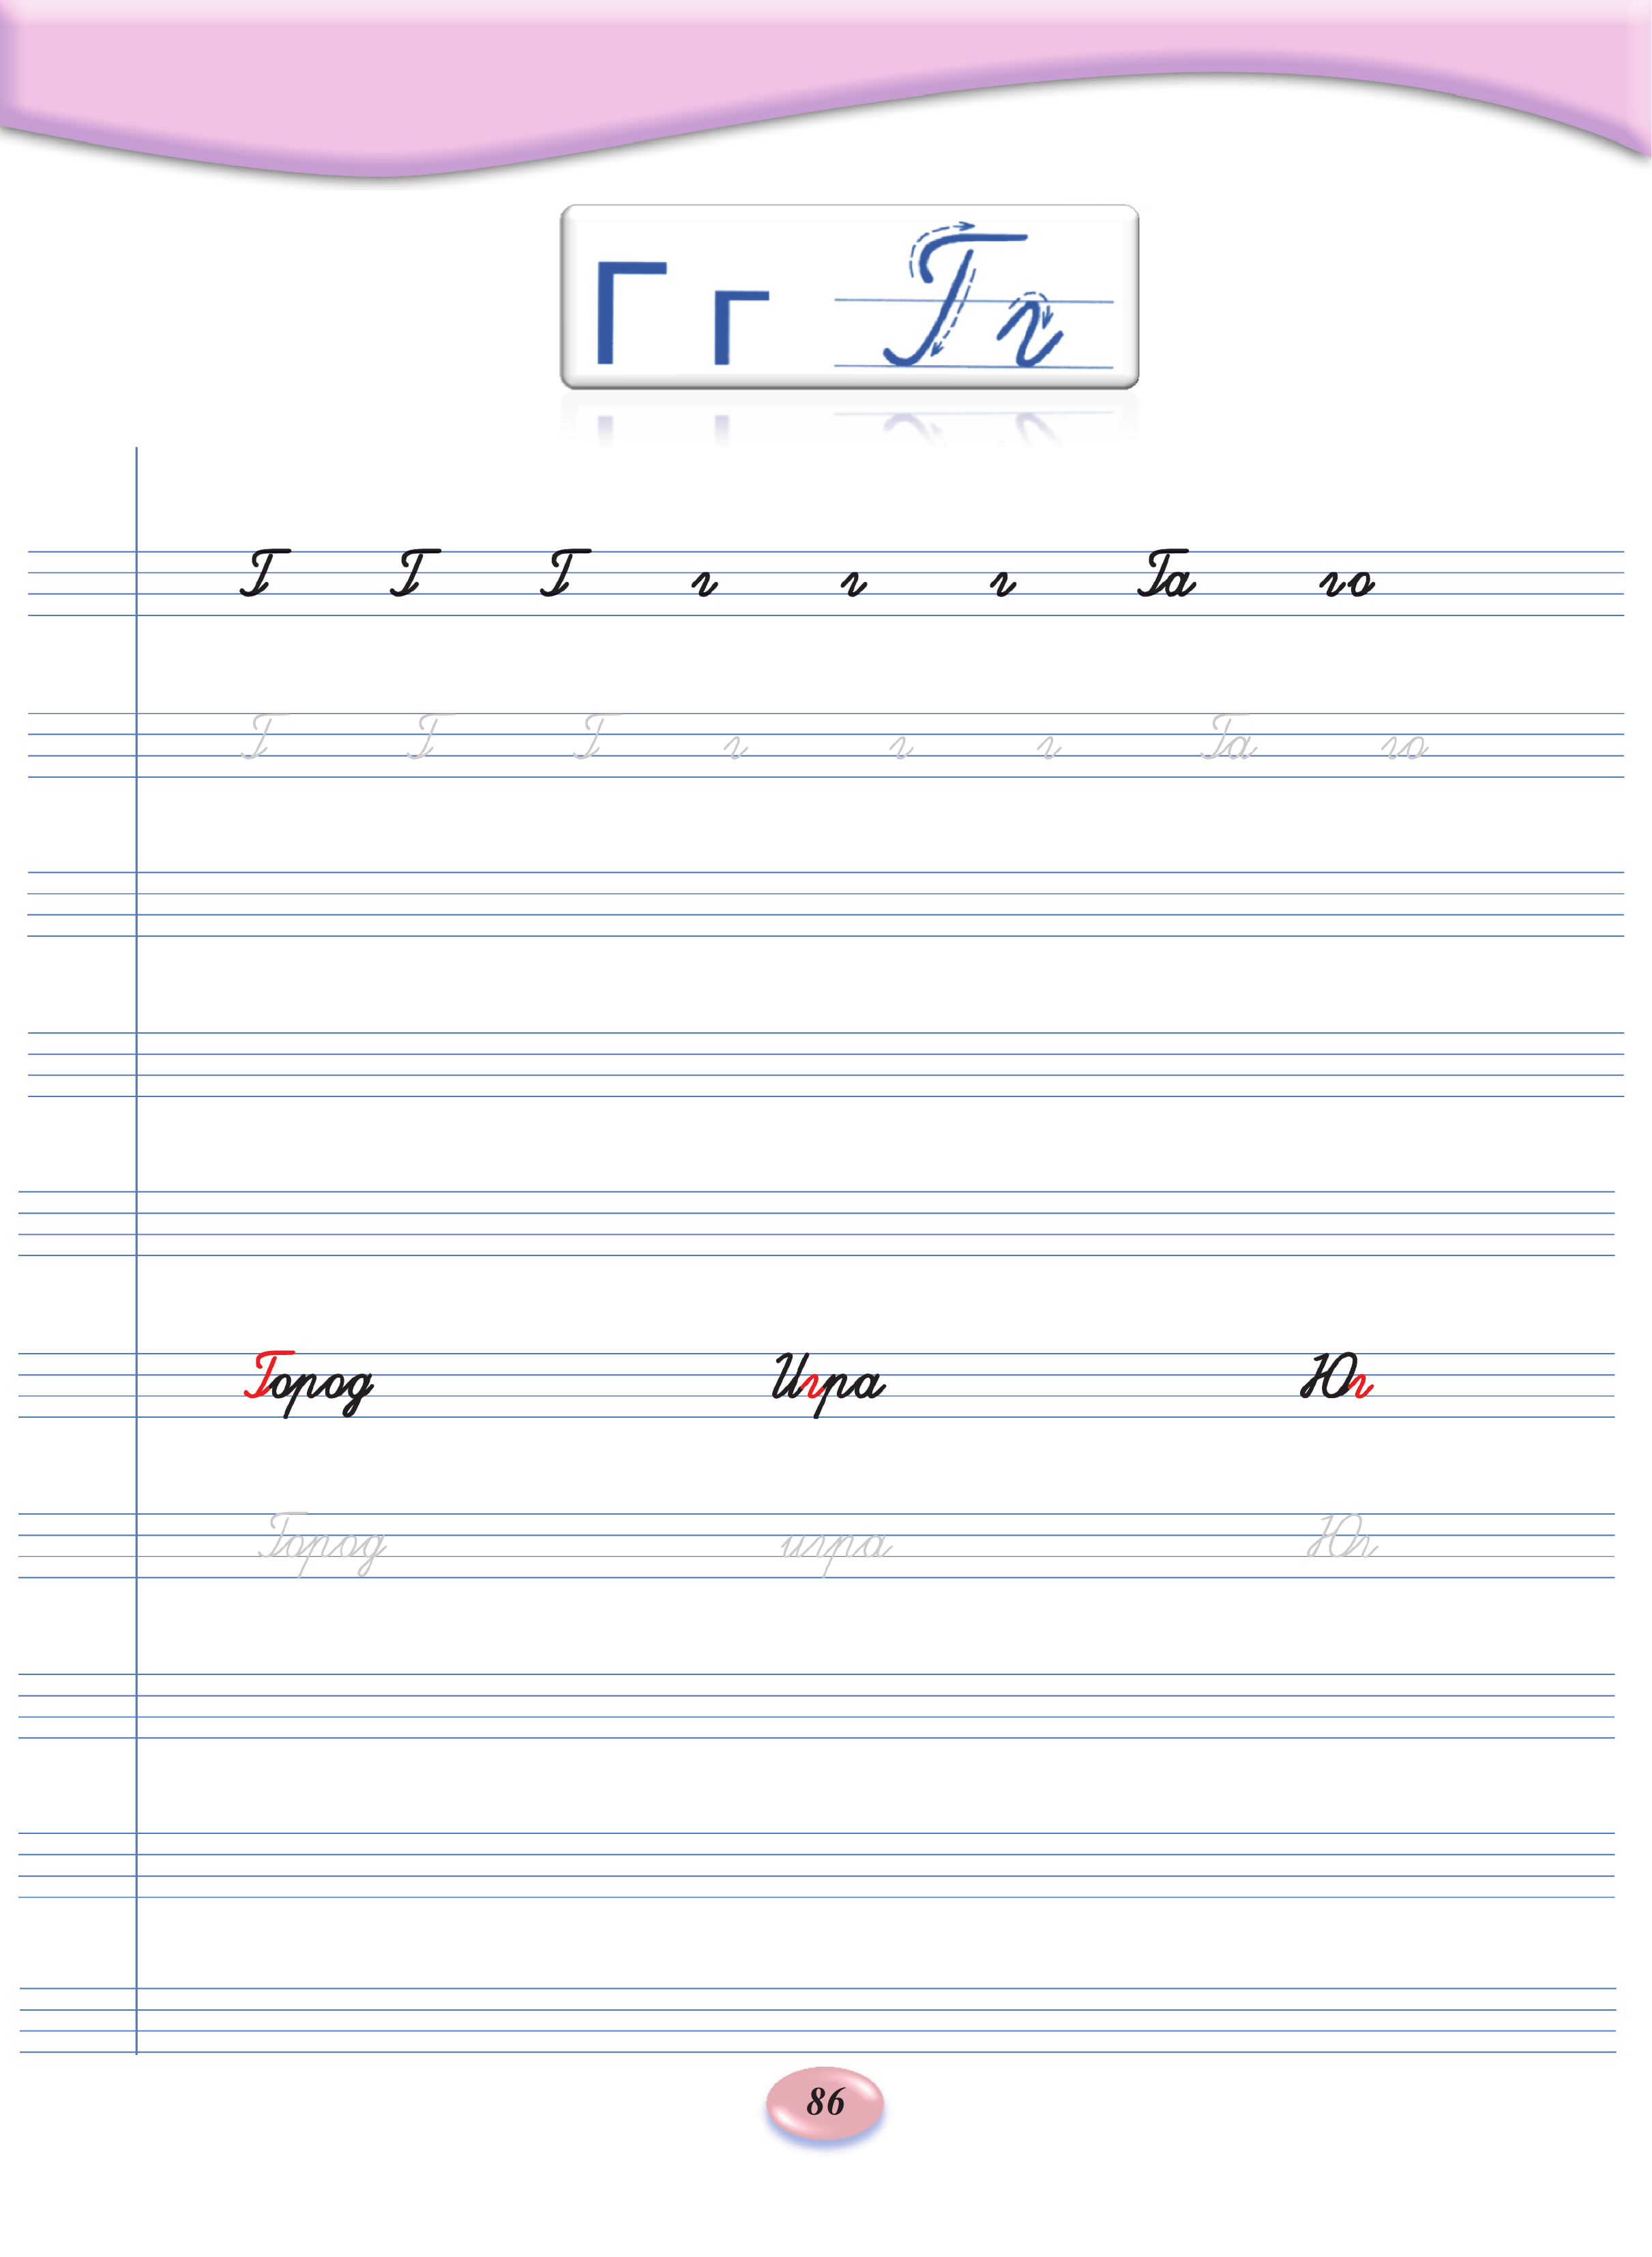 Г г Г г
Г Г Г г г г Га го
Г Г Г г г г Га го
Город Игра Юг
Город игра Юг
86